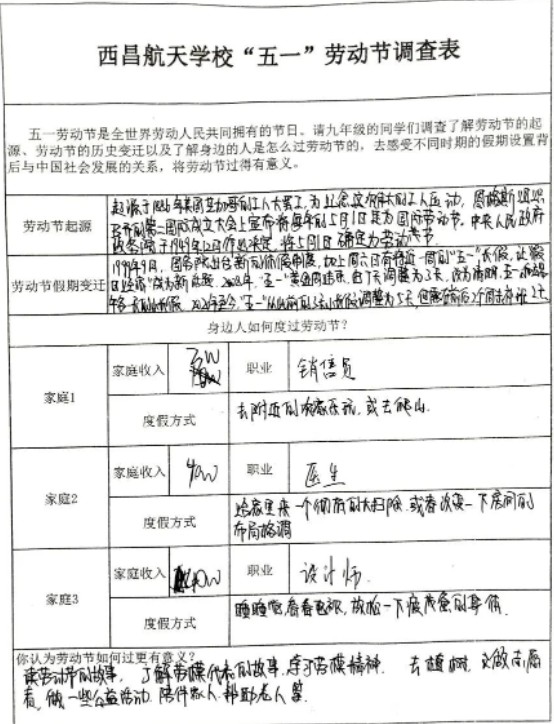 西昌航天学校“五一”劳动节调查表
五一劳动节是全世界劳动人民共同拥有的节日。请九年级的同学们调查了解劳动节的起
源、劳动节的历史变迁以及了解身边的人是怎么过劳动节的，去感受不同时期的假期设置背
后与中国社会发展的关系，将劳动节过得有意义。
劳动节起源
起源于1886年美国芝加哥的工人大罢工，为纪念这次伟大的工人运动，恩格斯组织
召开的第二国际成立大会上宣布将每年的5月1日定为国际劳动节。中央人民政府
政务院于1949年12月作出决定，将5月1日确定为劳动节
劳动节假期变迁
1999年9月，国务院出台新的休假制度，加上周六日有将近一周的“五一”长假，让假
日经济成为新 2008年，“五一”黄金周结束，由7天调整为3天，改为清明、五一、端午
“五一”从 调整为5天，但 前后2个周末 2天
身边人如何度过劳动节？
家庭1 家庭收入 3W 职业 销售员
度假方式 去附近的农家乐玩，或去爬山。
家庭2 家庭收入 40W 职业 医生
度假方式 给家里来一个彻底的大扫除，或者改变一下房间的
布局格调
家庭3 家庭收入 40W 职业 设计师
度假方式 睡睡觉，看看电视，放松一下疲惫的身体
你认为劳动节如何过更有意义？
读劳动节的故事，了解劳模代表的故事，学习劳模精神。去植树，又做志愿
者，做一些公益活动，陪伴家人，帮助老人等